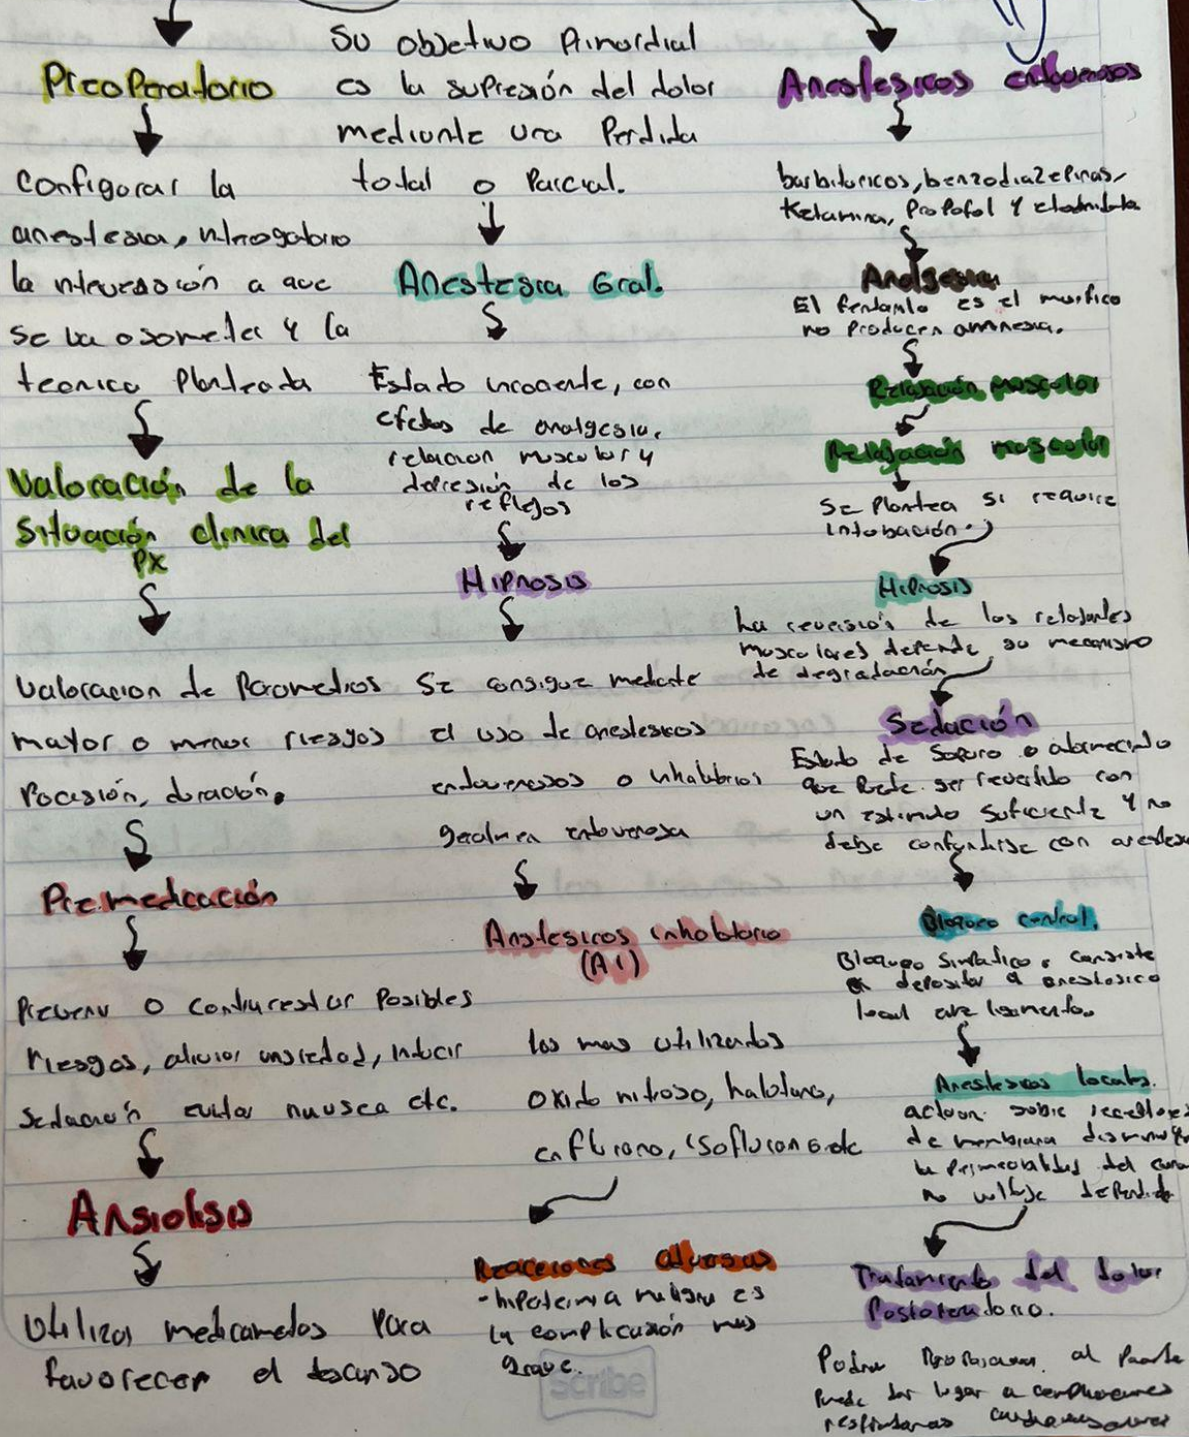 Preoperatorio
configurar la
anestesia, interogatorio
la intervención a que
se va osometer y la
tecnica planteada
Valoración de la
Situación clinica del
PX
Valoracion de Parametros
mayor o menor riesgos
Posición, duración.
Premedicación
Prevenir o contrarestar Posibles
riesgos, aliviar ansiedad, inducir
Sedación evitar nausea etc.
Ansiolisis
Utilizar medicametos Para
favorecer el descanso
Su objetivo Primordial
es la supresión del dolor
mediante una Perdida
total o Parcial.
Anestesia Gral.
Estado inconciente, con
efectos de analgesia,
relacion muscular y
depresión de los
reflejos
Hipnosis
Se consigue mediante
el uso de anestesicos
endovenosos o inhalatorios
endovenosa
Anstesicos inhalatorio
(AI)
los mas utilizados
oxido nitroso, halotano,
enflurano, isoflurano etc
Reacciones adversas
- hipotermia maligna es
la complicación mas
grave.
scribe
Anestesicos endovenosos
barbituricos, benzodiazepinas,
Ketamina, Propofol y etodmidato
Analgesia
El fentanilo es el morfico
no producen amnesia.
Relajación muscular
Relajación muscular
Se Plantea si require
intubación.
Hipnosis
La reversión de los relajantes
musculares depende su mecanismo
de degradación
Sedación
Estado de Sopuro o adormecido
que Puede ser revertido con
un estimulo suficiente y no
debe confundirse con
Bloqueo central.
Bloqueo Simpatico, consiste
en depositar el anestesico
local
Anestesicos locales.
actuan sobre receptores
de membrana
la permeabilidad del
no voltaje dependide
Tratamiento del dolor
Postoperatorio.
Podria al Paciente
Puede dar lugar a complicaciones
respiratorias cardiovasculares